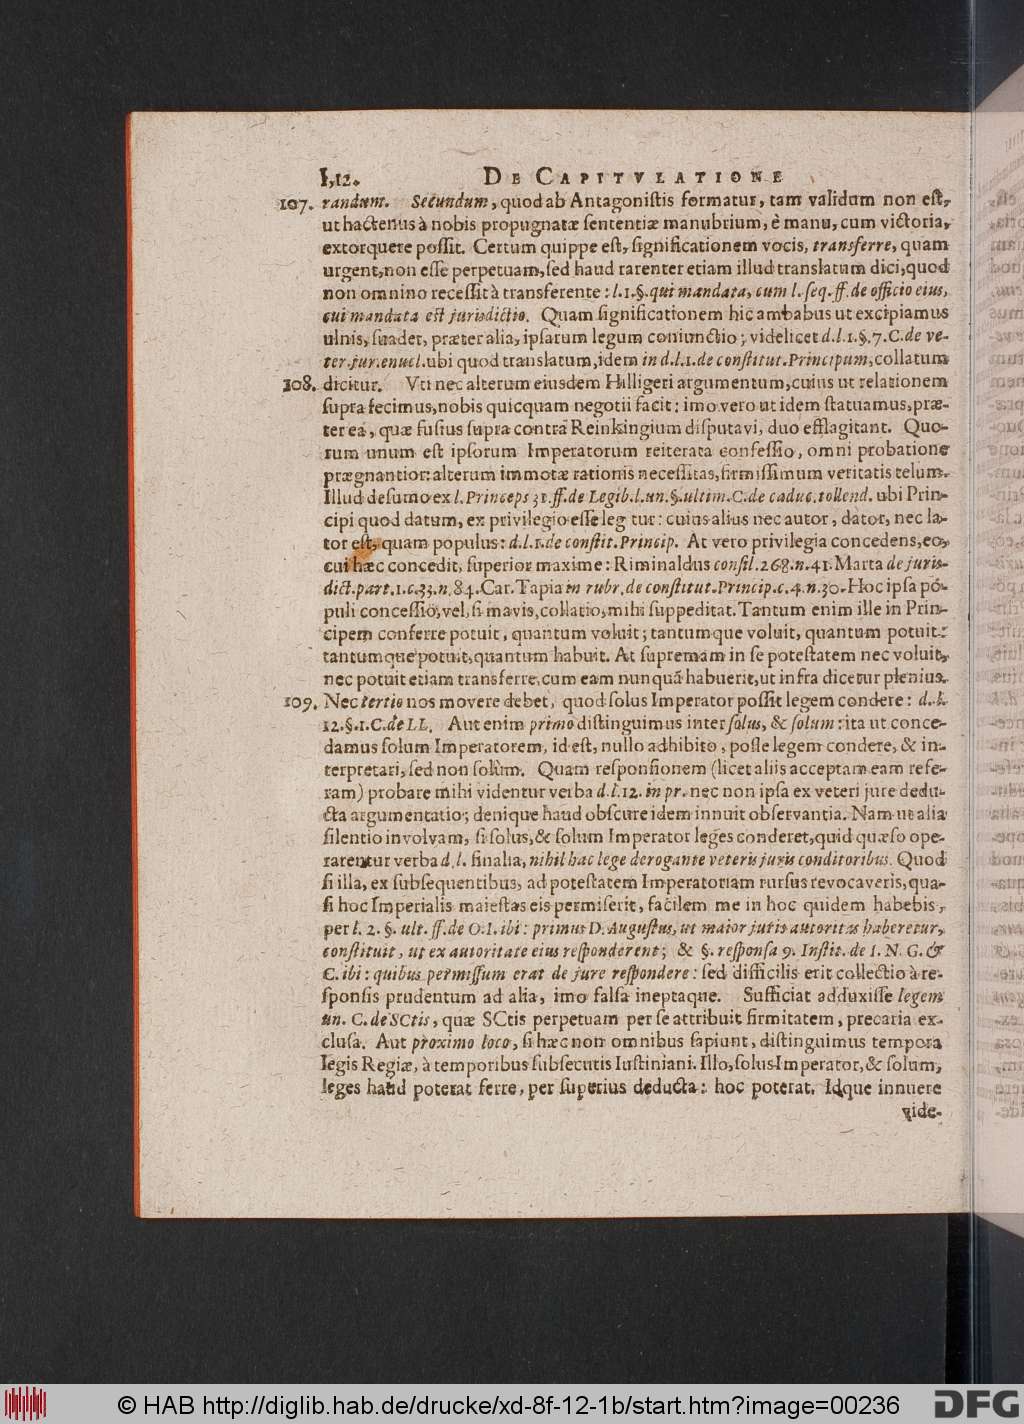 I,12. DE CAPITVLATIONE
107. randum. Secundum, quod ab Antagonistis formatur, tam validum non est,
ut hactenus à nobis propugnatæ sententiæ manubrium, è manu, cum victoria,
extorquere possit. Certum quippe est, significationem vocis, transferre, quam
urgent, non esse perpetuam, sed haud rarenter etiam illud translatum dici, quod
non omnino recessit à transferente: l.1.§.qui mandata, cum l. seq. ff. de officio eius,
cui mandata est jurisdictio. Quam significationem hic ambabus ut excipiamus
ulnis, suadet, præter alia, ipsarum legum coniunctio; videlicet d.l.1.§.7.C.de ve-
ter.jur.enucl. ubi quod translatum, idem in d.l.1.de constitut.Principum, collatum
108. dicitur. Vti nec alterum eiusdem Hilligeri argumentum, cuius ut relationem
supra fecimus, nobis quicquam negotii facit: imo vero ut idem statuamus, præ-
ter ea, quæ fusius supra contra Reinkingium disputavi, duo efflagitant. Quo-
rum unum est ipsorum Imperatorum reiterata confessio, omni probatione
prægnantior: alterum immotæ rationis necessitas, firmissimum veritatis telum.
Illud desumo ex l. Princeps 31. ff. de Legib.l.un.§.ultim.C.de caduc.tollend. ubi Prin-
cipi quod datum, ex privilegio esse leg tur: cuius alius nec autor, dator, nec la-
tor est, quam populus: d.l.1.de constit.Princip. At vero privilegia concedens, eo,
cui hæc concedit, superior maxime: Riminaldus consil.268.n.41. Marta de juris-
dict.part.1.c.33.n.84. Car. Tapia in rubr.de constitut.Princip.c.4.n.30. Hoc ipsa pó-
puli concessiō, vel, si mavis, collatio, mihi suppeditat. Tantum enim ille in Prin-
cipem conferre potuit, quantum voluit; tantumque voluit, quantum potuit:
tantumque potuit, quantum habuit. At supremam in se potestatem nec voluit,
nec potuit etiam transferre, cum eam nunquā habuerit, ut infra dicetur plenius.
109. Nec tertio nos movere debet, quod solus Imperator possit legem condere: d. l.
12.§.1.C.de LL. Aut enim primo distinguimus inter solus, & solum: ita ut conce-
damus solum Imperatorem, id est, nullo adhibito, posse legem condere, & in-
terpretari, sed non solùm. Quam responsionem (licet aliis acceptam eam refe-
ram) probare mihi videntur verba d.l.12. in pr. nec non ipsa ex veteri jure dedu-
cta argumentatio; denique haud obscure idem innuit observantia. Nam ut alia
silentio involvam, si solus, & solum Imperator leges conderet, quid quæso ope-
rarentur verba d, l. finalia, nihil hac lege derogante veteris juris conditoribus. Quod
si illa, ex subsequentibus, ad potestatem Imperatoriam rursus revocaveris, qua-
si hoc Imperialis maiestas eis permiserit, facilem me in hoc quidem habebis,
per l. 2. §. ult. ff. de O.I. ibi: primus D. Augustus, ut maior juris autoritas haberetur,
constituit, ut ex autoritate eius responderent; & §. responsa 9. Instit. de I. N. G. &
C. ibi: quibus permissum erat de jure respondere: sed difficilis erit collectio à re-
sponsis prudentum ad alia, imo falsa ineptaque. Sufficiat adduxisse legem
un. C. de SCtis, quæ SCtis perpetuam per se attribuit firmitatem, precaria ex-
clusa. Aut proximo loco, si hæc non omnibus sapiunt, distinguimus tempora
legis Regiæ, à temporibus subsecutis Iustiniani. Illo, solus Imperator, & solum,
leges haud poterat ferre, per superius deducta: hoc poterat. Idque innuere
vide-
© HAB http://diglib.hab.de/drucke/xd-8f-12-1b/start.htm?image=00236
DFG